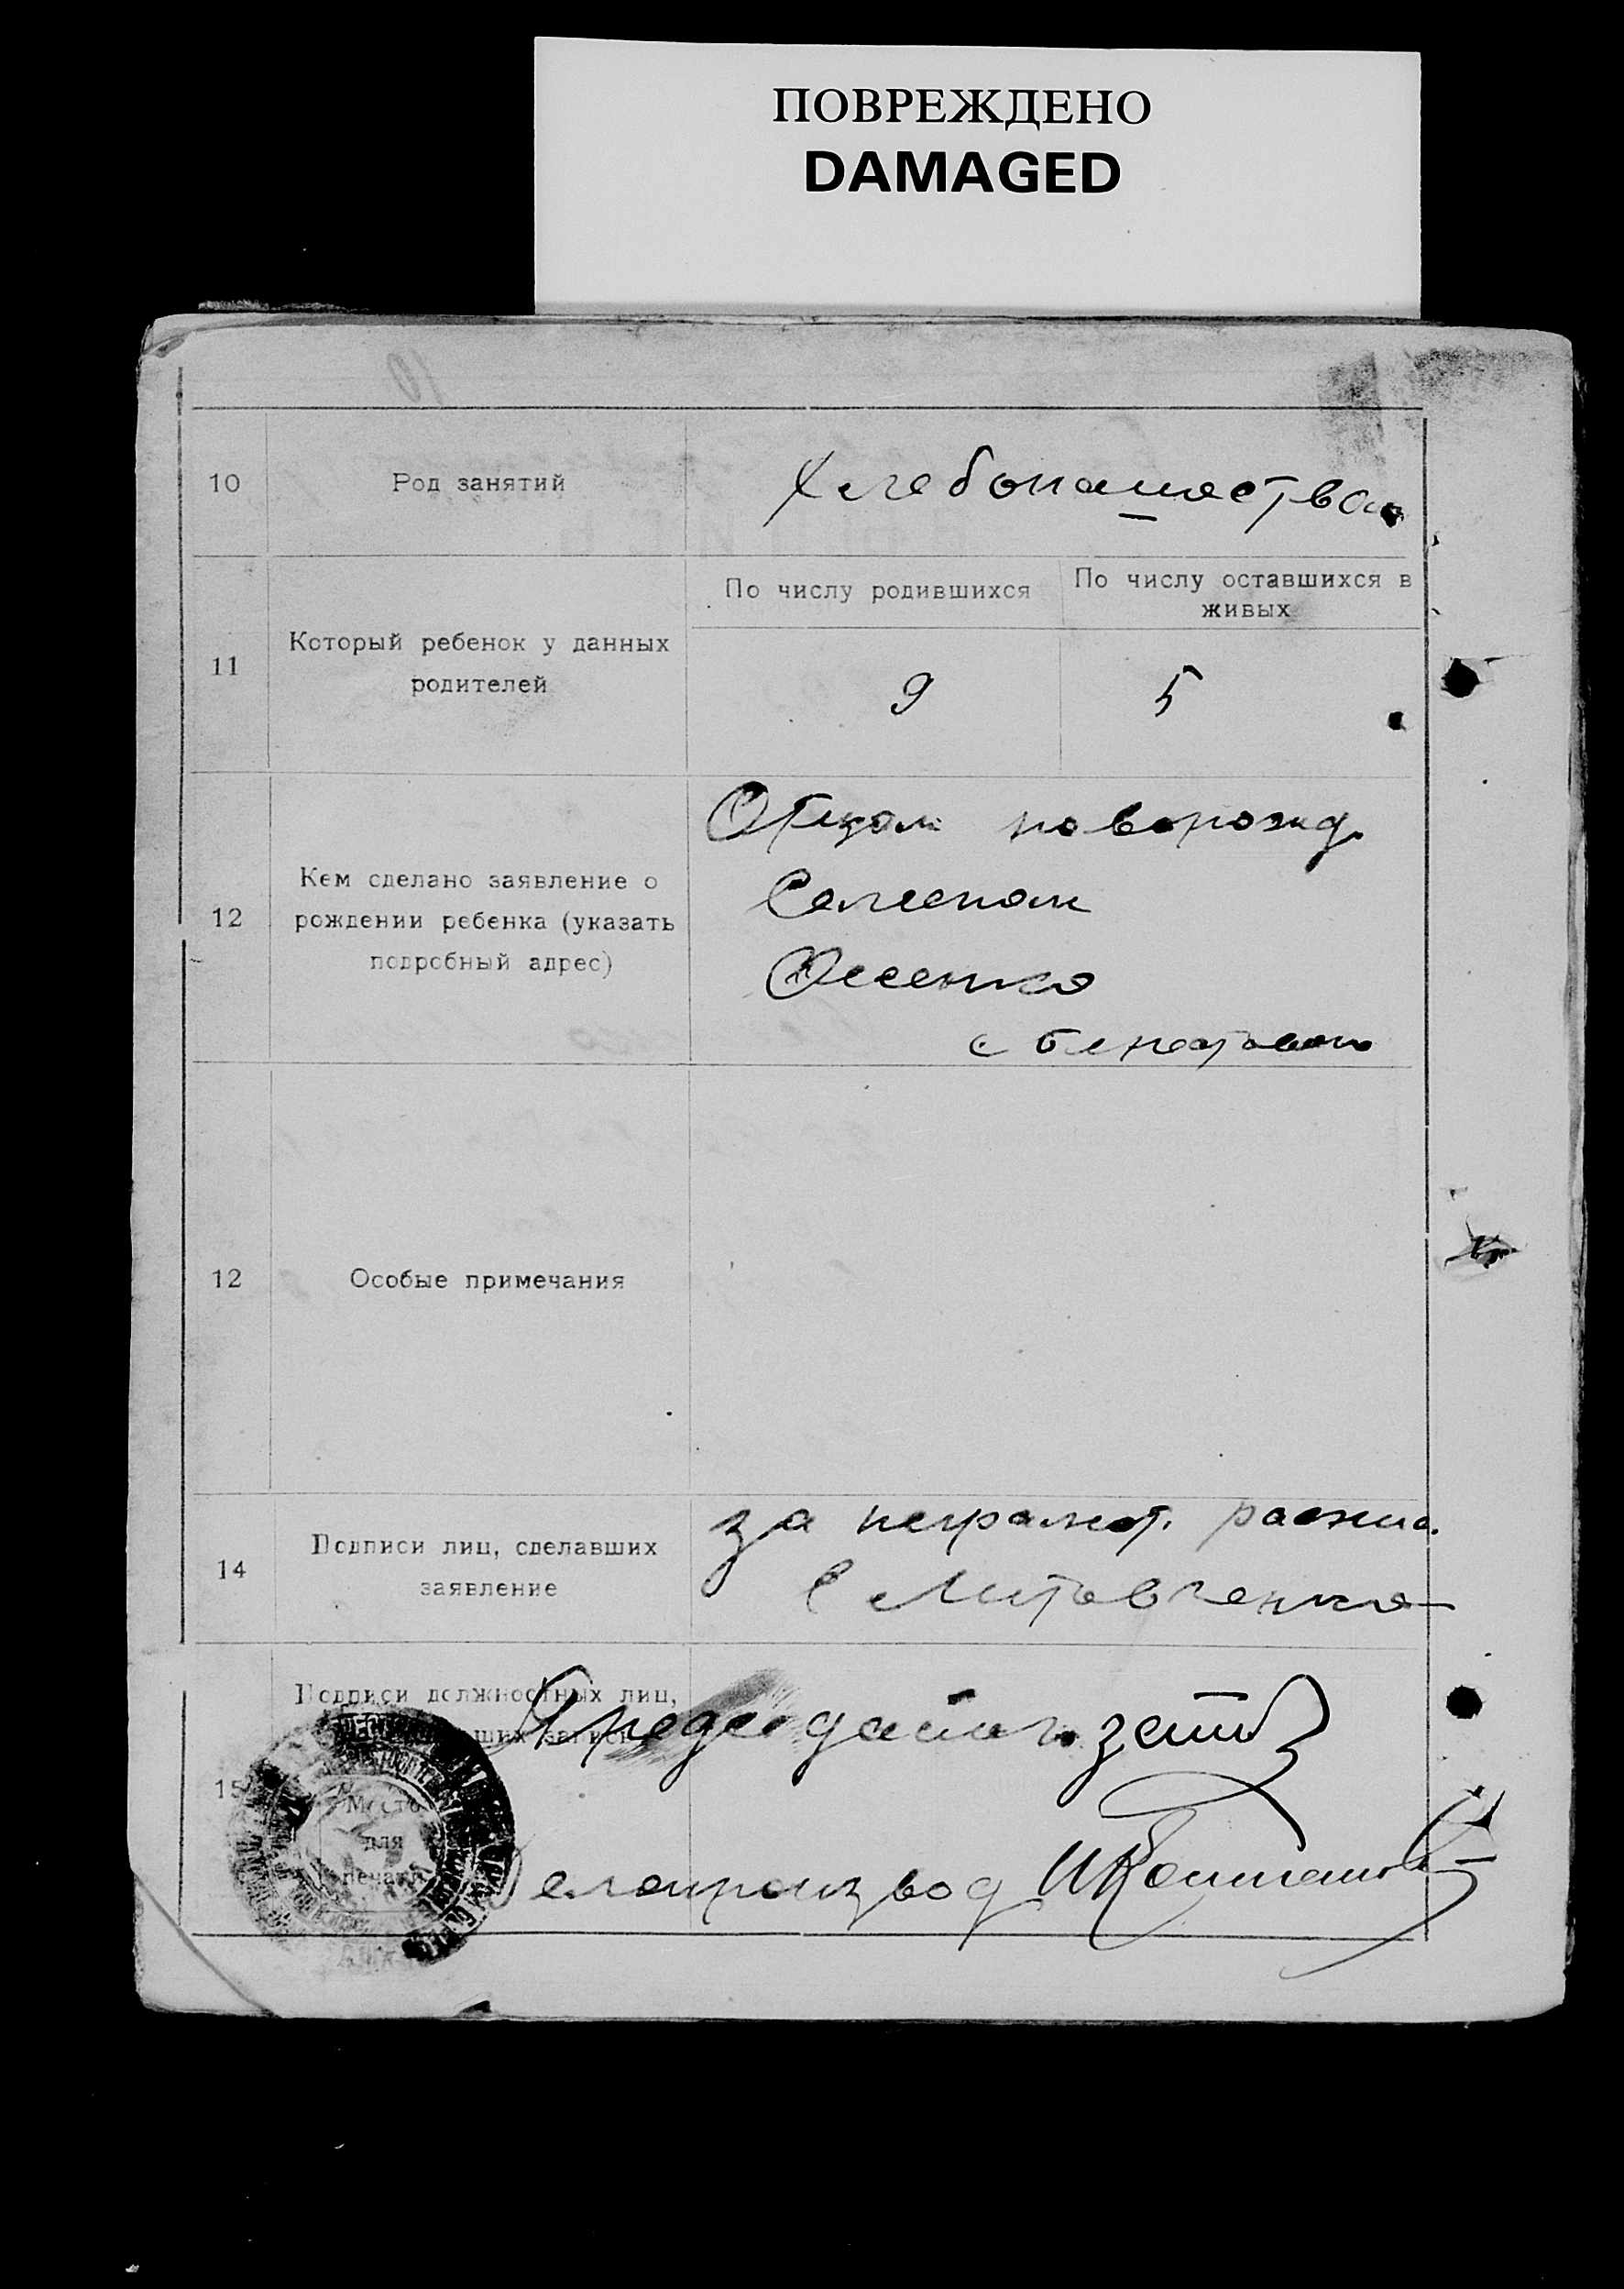 ПОВРЕЖДЕНО
DAMAGED
10
10
Род занятий
Хлебопашество
11
Который ребенок у данных
родителей
По числу родившихся
По числу оставшихся в
живых
9
5
12
Кем сделано заявление о
рождении ребенка (указать
подробный адрес)
Отцом новорожд.
Семеном
Осеенко
с
12
Особые примечания
14
Подписи лиц, сделавших
заявление
за неграмот. распис.
С Литовченко
15
Подписи должностных лиц,
записи
Место
для
печати
Председатель
Делопроизвод